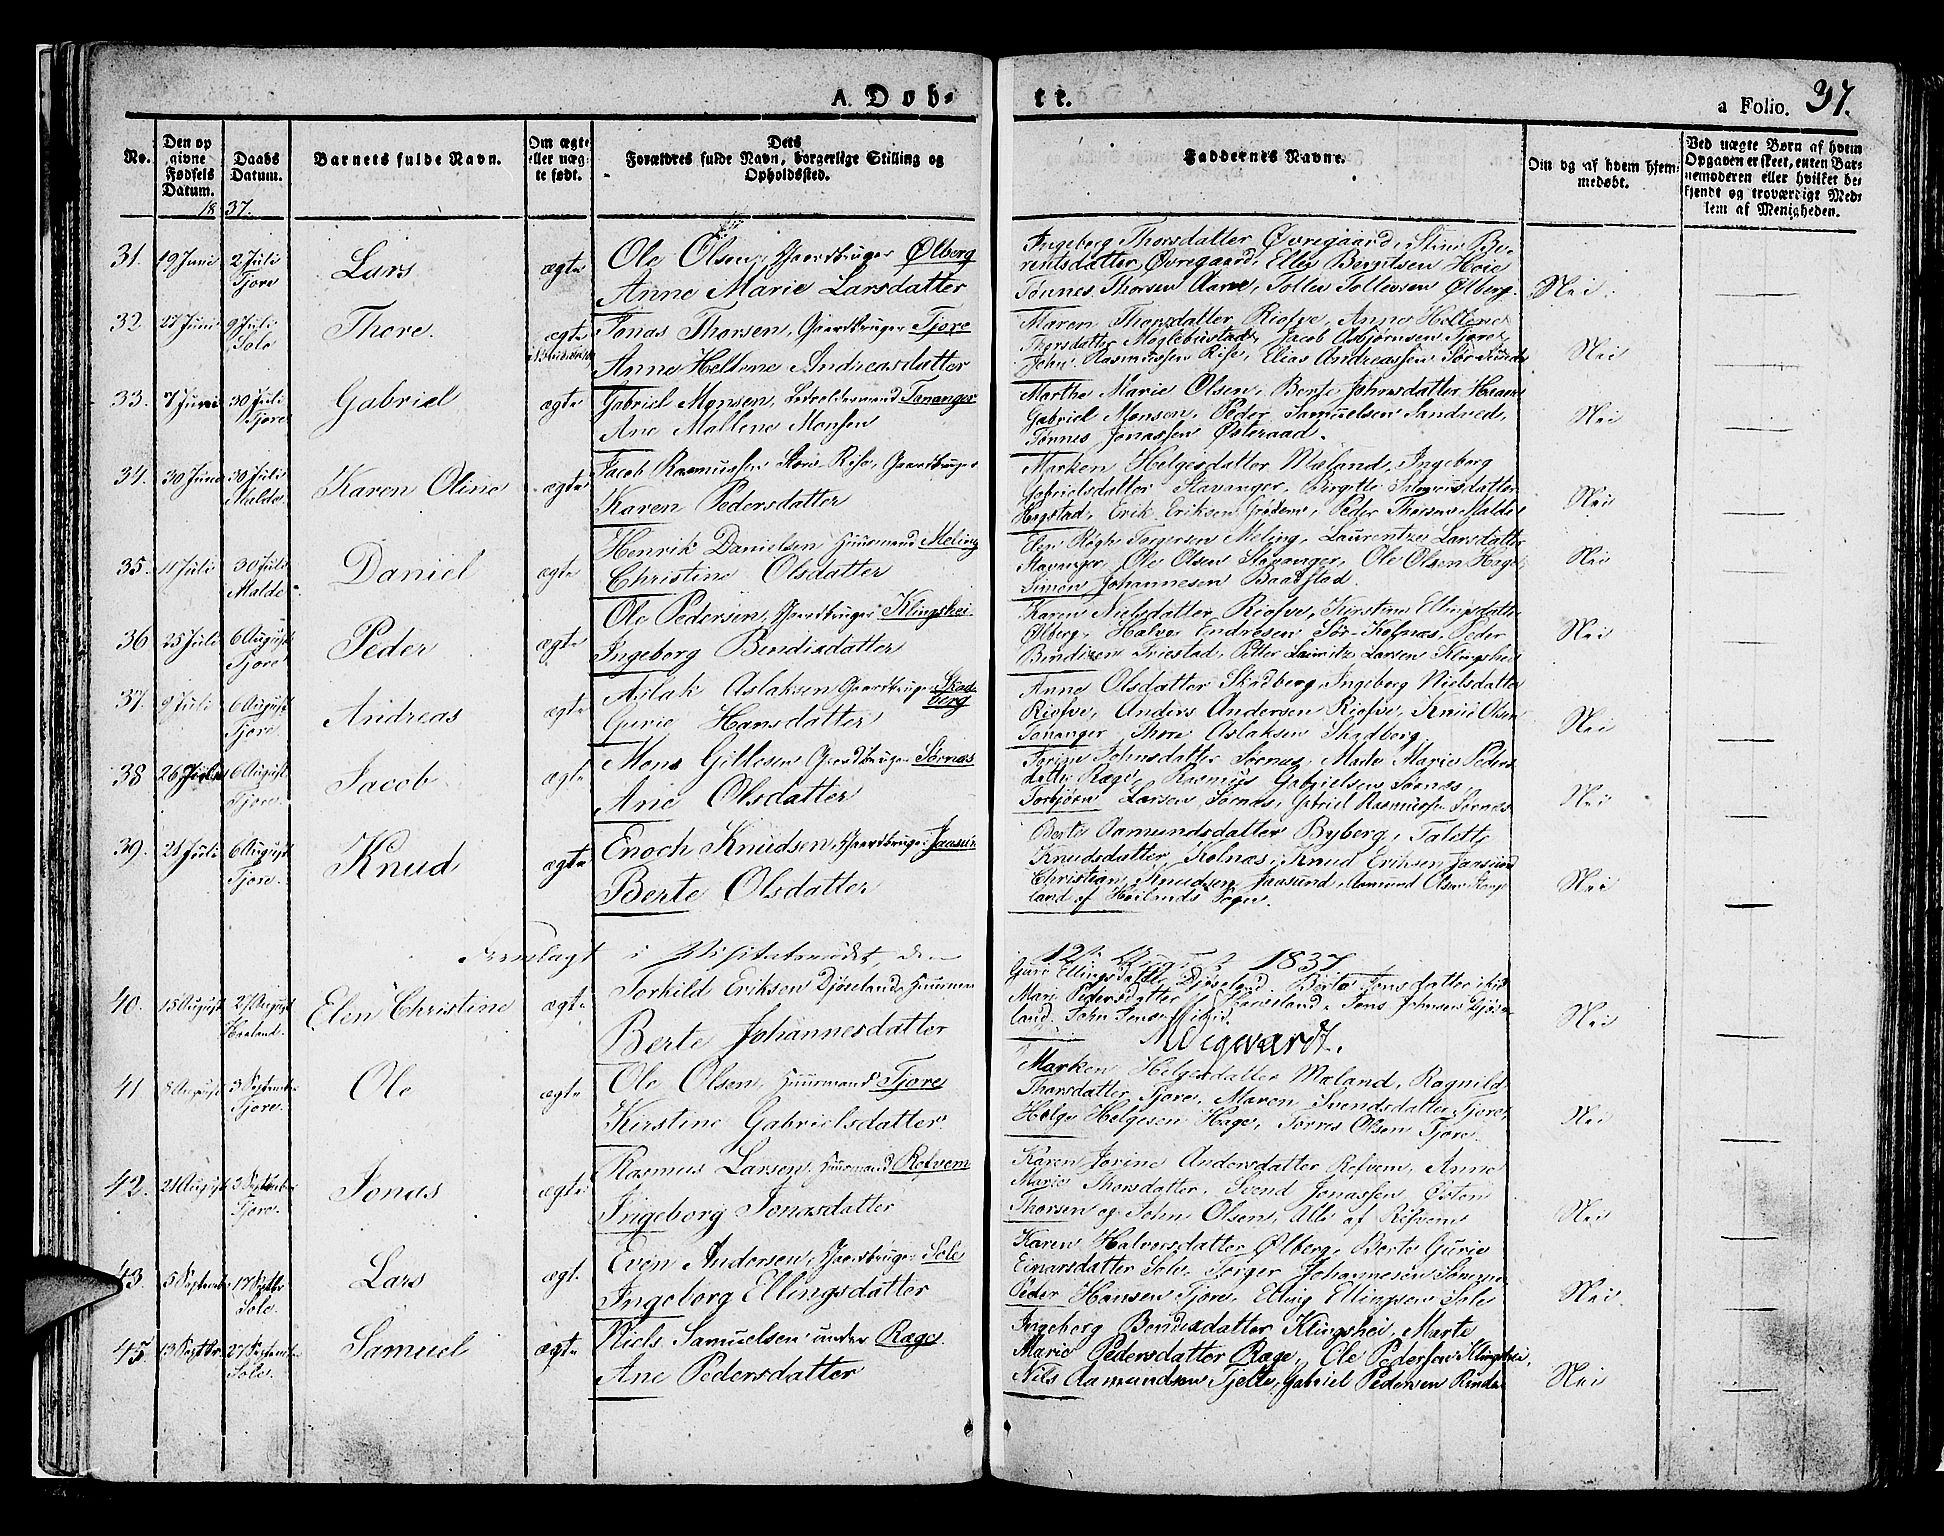 A. Døb-
te.
a Folio. 37.
No.
Den op
givne
Fødsels
Datum.
Daabs
Datum.
Barnets fulde Navn.
Om ægte
eller uæg-
te født.
Dets
Forældres fulde Navn, borgerlige Stilling og
Opholdssted.
Faddernes Navne.
Om og af hvem hjem-
medøbt.
Ved uægte Børn af hvem
Opgaven er skeet, enten Bar-
nemoderen eller hvilket be-
kjendt og troværdigt Med-
lem af Menigheden.
1837.
31. 19 Juni 2 Juli Tjore Lars ægte
Ole Olsen, Gaardbruger Ølberg
Anne Marie Larsdatter
Ingeborg Thorsdatter Øvregaard, Stine Be-
rentsdatter Øvregaard, Elles Berentsen Hoie
Tønnes Thorsen Aarre, Tolles Tollevsen Ølberg.
Nei.
32. 21 Juni 9 Juli Sole Thore. ægte
Jonas Thorsen, Gaardbruger Tjore
Anne Hellene Andreasdatter
Maren Thorsdatter Riofve, Anne Hellene
Thorsdatter Møglebustad, Jacob Asbjørnsen Tjore,
John Rasmussen Rise, Elias Andreassen Sør Sunde
Nei
33. 7 Juni 30 Juli Tjore Gabriel ægte
Gabriel Monsen, Ledvoldsmand Tananger
Ane Mallene Monsen
Marthe Marie Olsen, Berte Johnsdatter Haave
Gabriel Monsen, Peder Samuelsen Sandved,
Tønnes Jonassen Østeraad.
Nei
34. 30 Juni 30 Juli Malde. Karen Oline ægte
Jacob Rasmussen Store Rise, Gaardbruger
Karen Pedersdatter
Marken Helgesdatter Mæland, Ingeborg
Gabrielsdatter Stavanger, Birgitte Simonsdatter
Hogstad, Erik Eriksen Grødem, Peder Thorsen Malde
Nei
35. 11 Juli 30 Juli Malde. Daniel ægte
Henrik Danielsen Huusmand Meling
Christine Olsdatter
Elen Røgh Torgersen Meling, Laurentze Larsdatter
Stavanger, Ole Olsen Stavanger, Ole Olsen Hage,
Simon Johannesen Baadstad.
Nei
36 25 Juli 6 August Tjore Peder ægte
Ole Pedersen, Gaardbruger Klingshei
Ingeborg Bendixdatter
Karen Nielsdatter Riofve, Kirstine Ellingsdatter
Ølberg, Halvor Endresen Sør-Kolnæs, Peder
Bendixen Friestad, Peter Lauritz Larsen Klingshei
Nei
37. 9 Juli 6 August Tjore. Andreas ægte
Aslak Aslaksen Gaardbruger Skad-
berg
Gurie Hansdatter
Anne Olsdatter Skadberg, Ingeborg Nielsdatter
Riofve, Anders Andersen Riofve, Knud Olsen
Tananger, Thore Aslaksen Skadberg.
Nei
38 26 Juli 6 August Tjore. Jacob ægte
Mons Gillesen Gaardbruger Sørnæs
Ane Olsdatter
Jorine Johnsdatter Sørnæs, Made Marie Peders
datter Ræge, Rasmus Gabrielsen Sørnæs,
Torbjørn Larsen Sørnæs, Gabriel Rasmussen Sørnæs.
Nei
39. 21 Juli 6 August Tjore. Knud ægte
Enoch Knudsen, Gaardbruger Jaasund
Berte Olsdatter
Berte Aamundsdatter Byberg, Talette
Knudsdatter Kolnæs, Knud Eriksen Jaasund
Christian Knudsen Jaasund, Aamund Olsen Stange
land af Høilands Sogn.
Nei
Fremlagt i Visitatsmødet, den 12te August 1837
40. 15 August 27 August Haaland. Elen Christine ægte
Torkild Eriksen Djøseland, Huusmand
Berte Johannesdatter
Guri Ellingsdatter Djøseland, Berta Jonsdatter ibid
Mari Pedersdatter Haaeland, Jens Johnsen Djøse-
land. John Jensen ibid.
Nei
41 8 August 3 September Tjore. Ole ægte
Ole Olsen, Huusmand Tjore
Kirstine Gabrielsdatter
Marken Helgesdatter Mæland, Ragnild
Thorsdatter Tjore, Maren Svendsdatter Tjore,
Helge Helgesen Hage, Torris Olsen Tjore.
Nei
42. 21 August 3 September Tjore. Jonas ægte
Rasmus Larsen, Huusmand Refvem
Ingeborg Jonasdatter
Karen Jorine Andersdatter Refvem, Anne
Marie Thorsdatter, Svend Jonassen, Østen
Thorsen og John Olsen, Alle af Refvem
Nei
43. 5 September 17 Septbr Sole. Lars ægt.
Even Andersen, Gaardbruger Sole
Ingeborg Ellingsdatter
Karen Halvorsdatter Ølberg, Berte Gurie
Einarsdatter Sole, Torger Johannesen Somme
Peder Hansen Tjore, Elling Ellingsen Sole
Nei.
45. 13 Septbr. 27 September Sole. Samuel ægte
Niels Samuelsen under Ræge.
Ane Pedersdatter
Ingeborg Bendixdatter Klingshei, Marte
Marie Pedersdatter Ræge, Ole Pedersen Klingshei,
Nils Aamundsen Tjelte, Gabriel Pedersen Rinde
Nei